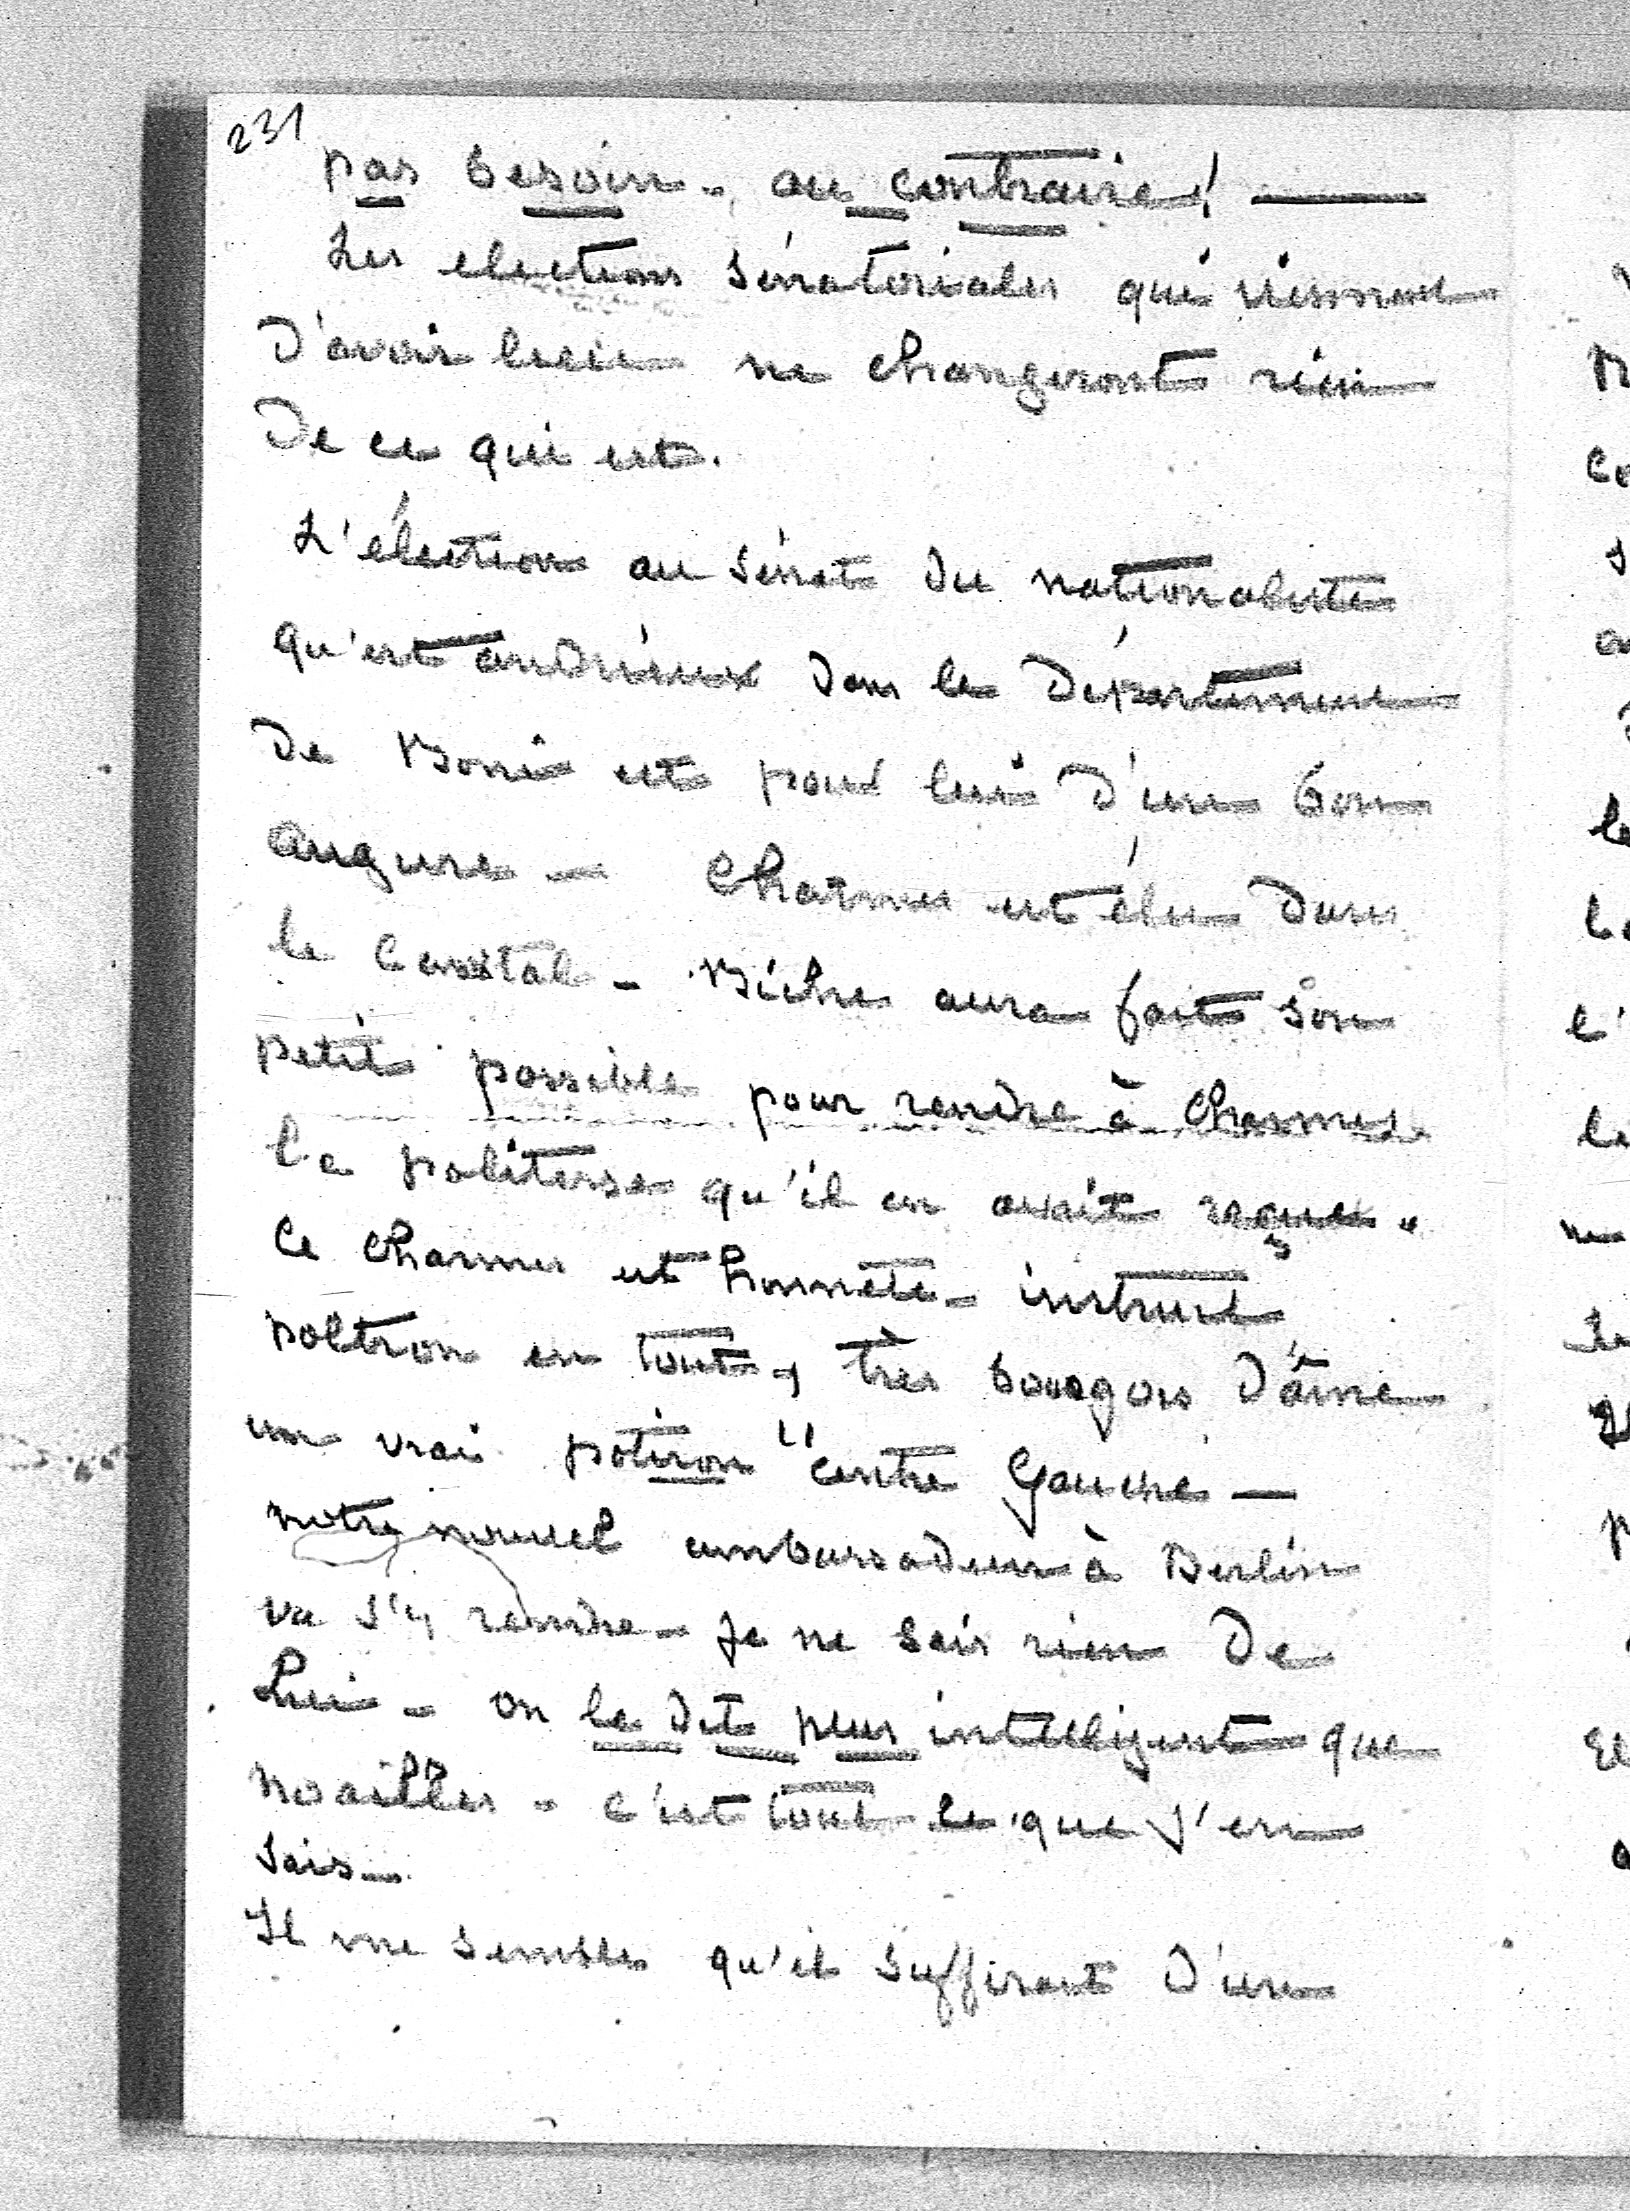 231
pas besoin - au contraire! —
Les elections sénatoriales qui viennent
D'avoir lieu ne changeront rien
De ce qui est.
L'élection au sénat du nationaliste
qu'est andrieux dans le Département
De Boni est pour lui D'une bon
augure - Charmes est élu Dans
le Cantal - Biche aura fait son
petit possible pour rendre à Charmes
la politesse qu'il en avait reçue.
Ce Charmes est honnête - instruit
poltron en tout, très bourgois D'âme
un vrai potiron "centre Gauche —
notre nouvel ambassadeur à Berlin
va s'y rendre - Je ne sais rien De
Lui - on le dit plus intelligent que
Noailles - c'est tout ce que j'en
sais -
Il me semble qu'il suffirait D'une